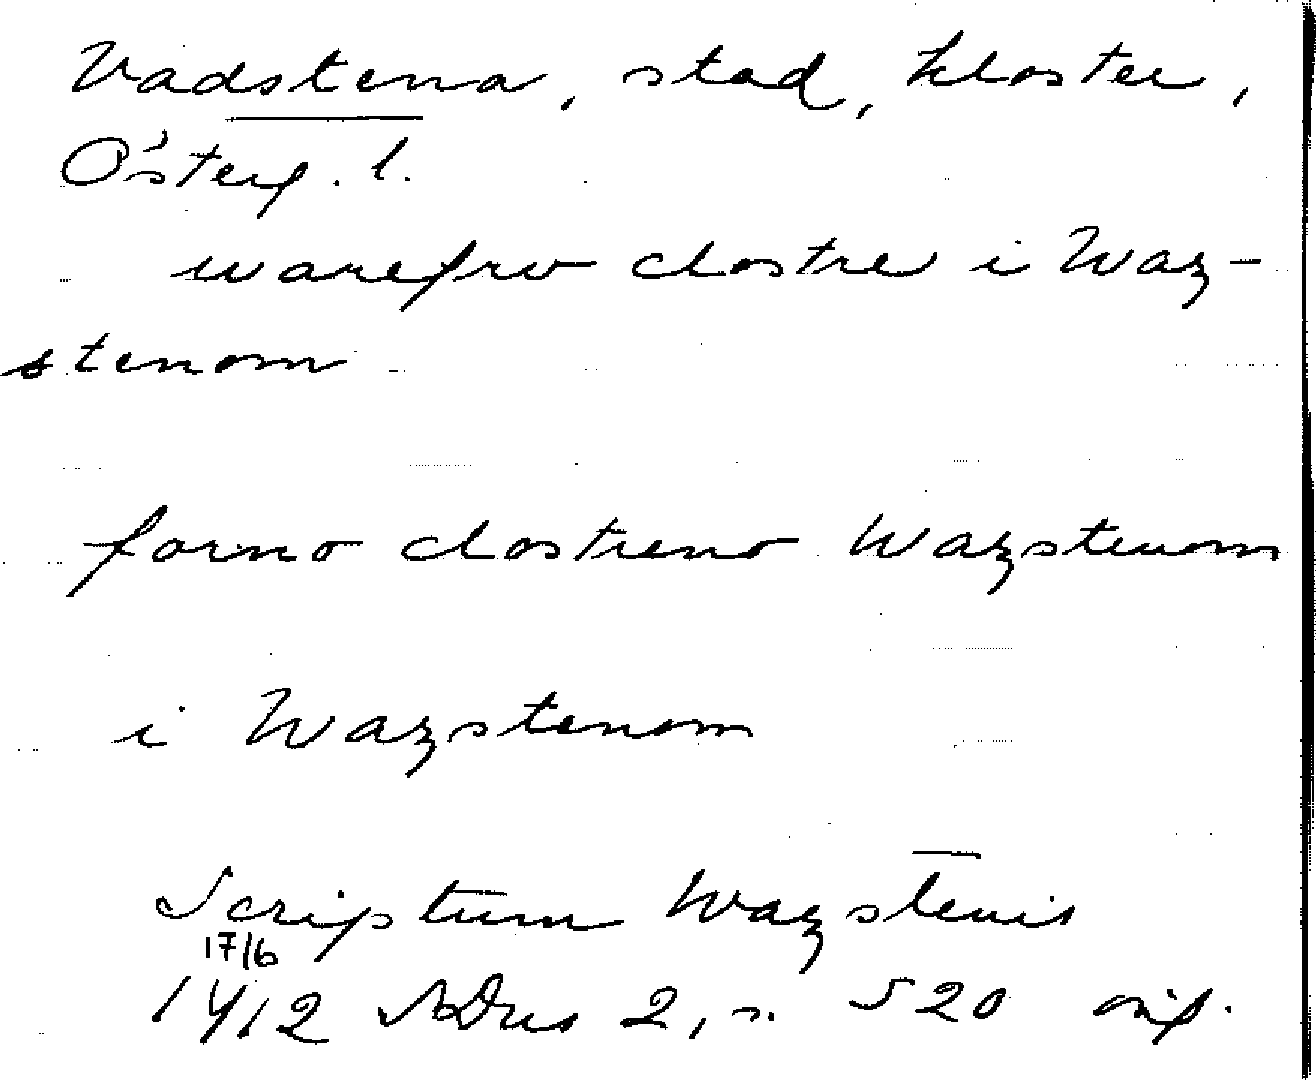 Vadstena, stad, kloster,
Österg. l.
warefrv clostre i Waz-
stenom
forno clostreno Wazstenom
i Wazstenom
Scriptum Wazstenis
17/6
1412 SDns 2, s. 520 orig.